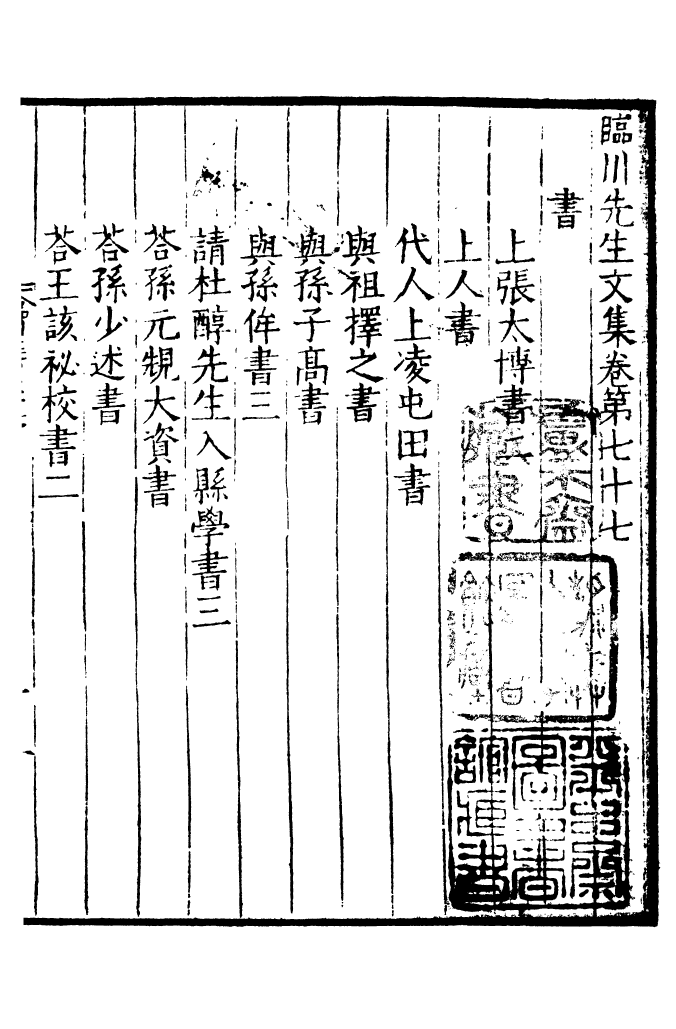 臨川先生文集卷第七十七
書
上張太博書二
上人書
代人上凌屯田書
與祖擇之書
與孫子髙書
與孫侔書三
請杜醇先生入縣學書二
荅孫元䂓大資書
荅孫少述書
荅王該祕校書二